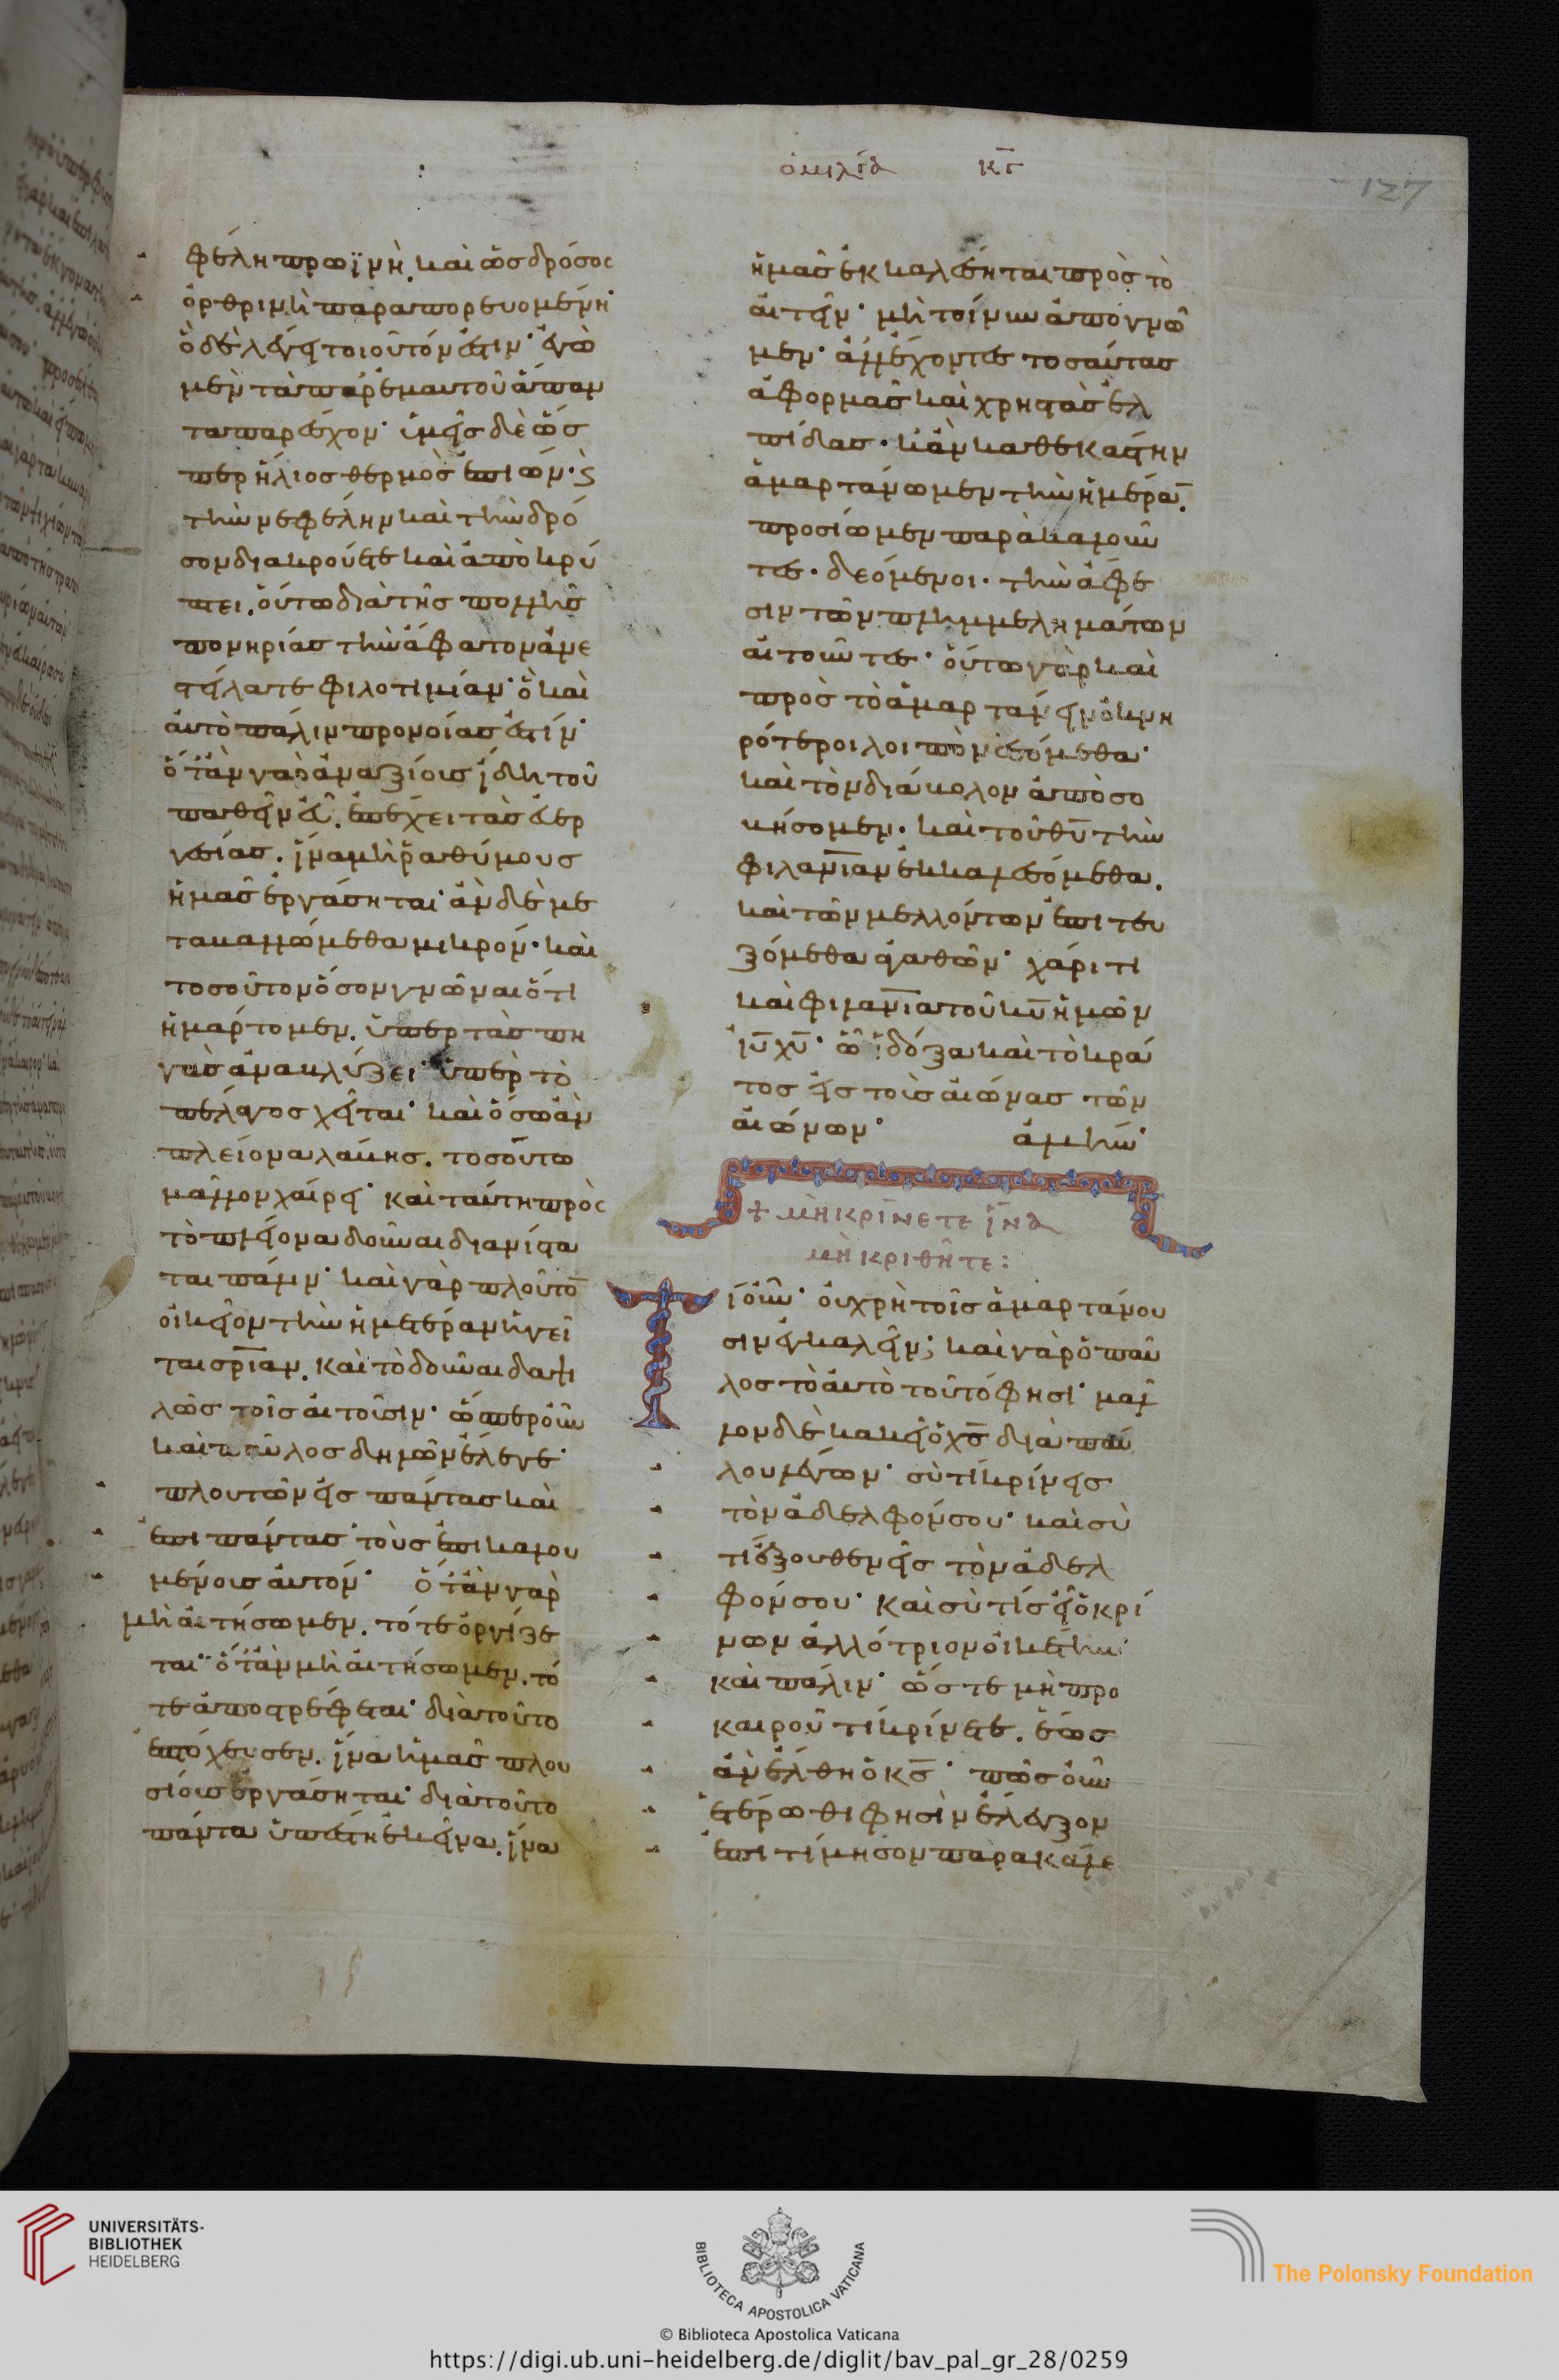 ὁμιλία κγ
127
φέλη πρωϊνὴ. καὶ ὡς δρόσος
ὀρθρινὴ παραπορευομένη·
ὃ δὲ λέγει τοιοῦτόν ἐστιν· ἐγὼ
μὲν τὰ παρ' ἐμαυτοῦ ἅπαν
τα παρέσχον· ὑμεῖς δὲ ὥσ
περ ἥλιος θερμὸς ἐπιὼν· ϛ
τὴν νεφέλην καὶ τὴν δρό
σον διακρούεται καὶ ἀποκρύ
πτει. οὕτω διὰ τῆς πολλῆς
πονηρίας τὴν ἄφατον ἀνε
στείλατε φιλοτιμίαν· ὃ καὶ
αὐτὸ πάλιν προνοίας ἐστίν·
ὅταν γὰρ ἀναξίους ἴδη τοῦ
παθεῖν εὖ. ἐπέχει τὰς εὐερ
γεσίας. ἵνα μὴ ῥαθύμους
ἡμᾶς ἐργάσηται· ἂν δὲ με
ταβαλλώμεθα μικρὸν· καὶ
τοσοῦτον ὅσον γνῶναι ὅτι
ἡμάρτομεν. ὑπὲρ τὰς πη
γὰς ἀναβλύζει· ὑπὲρ τὸ
πέλαγος χεῖται· καὶ ὅσω ἂν
πλείονα λάβης. τοσούτω
μᾶλλον χαίρει· καὶ ταύτη πρὸς
τὸ πλείονα δοῦναι διανίστα
ται πάλιν· καὶ γὰρ πλοῦτο̅
οἰκεῖον τὴν ἡμετέραν ἡγεῖ
ται σριαν. καὶ τὸ δοῦναι δαψι
λῶς τοῖς αἰτοῦσιν· ὥσπερ οὖν
καὶ παῦλος δηλῶν ἔλεγε·
πλουτῶν εἰς πάντας καὶ
ἐπὶ πάντας τοὺς ἐπικαλου
μένους αὐτόν· ὅταν γὰρ
μὴ αἰτήσωμεν. τότε ὀργίζε
ται· ὅταν μὴ αἰτήσωμεν. τό
τε ἀποστρέφεται· διὰ τοῦτο
ἐπτώχευσεν. ἵνα ἡμᾶς πλου
σίους ἐργάσηται· διὰ τοῦτο
πάντα ὑπέστη ἐκεῖνα. ἵνα
ἡμᾶς ἐκκαλέσηται πρὸς τὸ
αἰτεῖν· μὴ τοίνυν ἀπογνῶ
μεν· ἀλλ' ἔχοντες τοσαύτας
ἀφορμὰς καὶ χρηστὰς ἐλ
πίδας· κἂν καθεκάστην
ἁμαρτάνωμεν τὴν ἡμέρα̅.
προσίωμεν παρακαλοῦν
τες· δεόμενοι· τὴν ἄφε
σιν τῶν πλημμελημάτων
αἰτοῦντες· οὕτω γὰρ καὶ
πρὸς τὸ ἁμαρτάνειν ὀκνη
ρότεροι λοιπὸν ἐσόμεθα·
καὶ τὸν διάβολον ἀποσο
βήσομεν. καὶ τοῦ θυ τὴν
φιλανιαν ἐκκαλεσόμεθα.
καὶ τῶν μελλόντων ἐπιτευ
ξόμεθα ἀγαθῶν· χάριτι
καὶ φιλανια τοῦ κυ ἡμῶν
ἰυ χυ· ὧ ἡ δόξα καὶ τὸ κρά
τος εἰς τοὺς αἰῶνας τῶν
αἰώνων· ἀμήν·
+ μὴ κρίνετε ἵνα
μὴ κριθῆτε:
Τί οὖν· οὐ χρὴ τοῖς ἁμαρτάνου
σιν ἐγκαλεῖν; καὶ γὰρ ὁ παῦ
λος τὸ αὐτὸ τοῦτό φησι· μᾶλ
λον δὲ κἀκεῖ ὁ χς διὰ παύ
λου λέγων· σὺ τί κρίνεις
τὸν ἀδελφόν σου· καὶ σὺ
τί ἐξουθενεῖς τὸν ἀδελ
φόν σου· καὶ σὺ τίς εἶ ὁ κρί
νων ἀλλότριον οἰκέτην·
καὶ πάλιν· ὥστε μὴ πρὸ
καιροῦ τί κρίνετε. ἕως
ἂν ἔλθη ὁ κς· πῶς οὖν
ἑτέρωθι φησὶν ἔλεγξον
ἐπιτίμησον παρακάλε
UNIVERSITÄTS-
BIBLIOTHEK
HEIDELBERG
BIBLIOTECA APOSTOLICA VATICANA
The Polonsky Foundation
© Biblioteca Apostolica Vaticana
https://digi.ub.uni-heidelberg.de/diglit/bav_pal_gr_28/0259